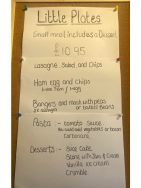 Little Plates
Small meal, Included a Dessert
£10.95
Lasagne, Salad, and Chips
Ham egg and Chips
Bangers and mash with peas
or baked beans
Pasta :- tomato Sauce
or carbonara
Desserts :- Rice Cake
Scone with Jam & Cream
Vanilla ice cream
Crumble